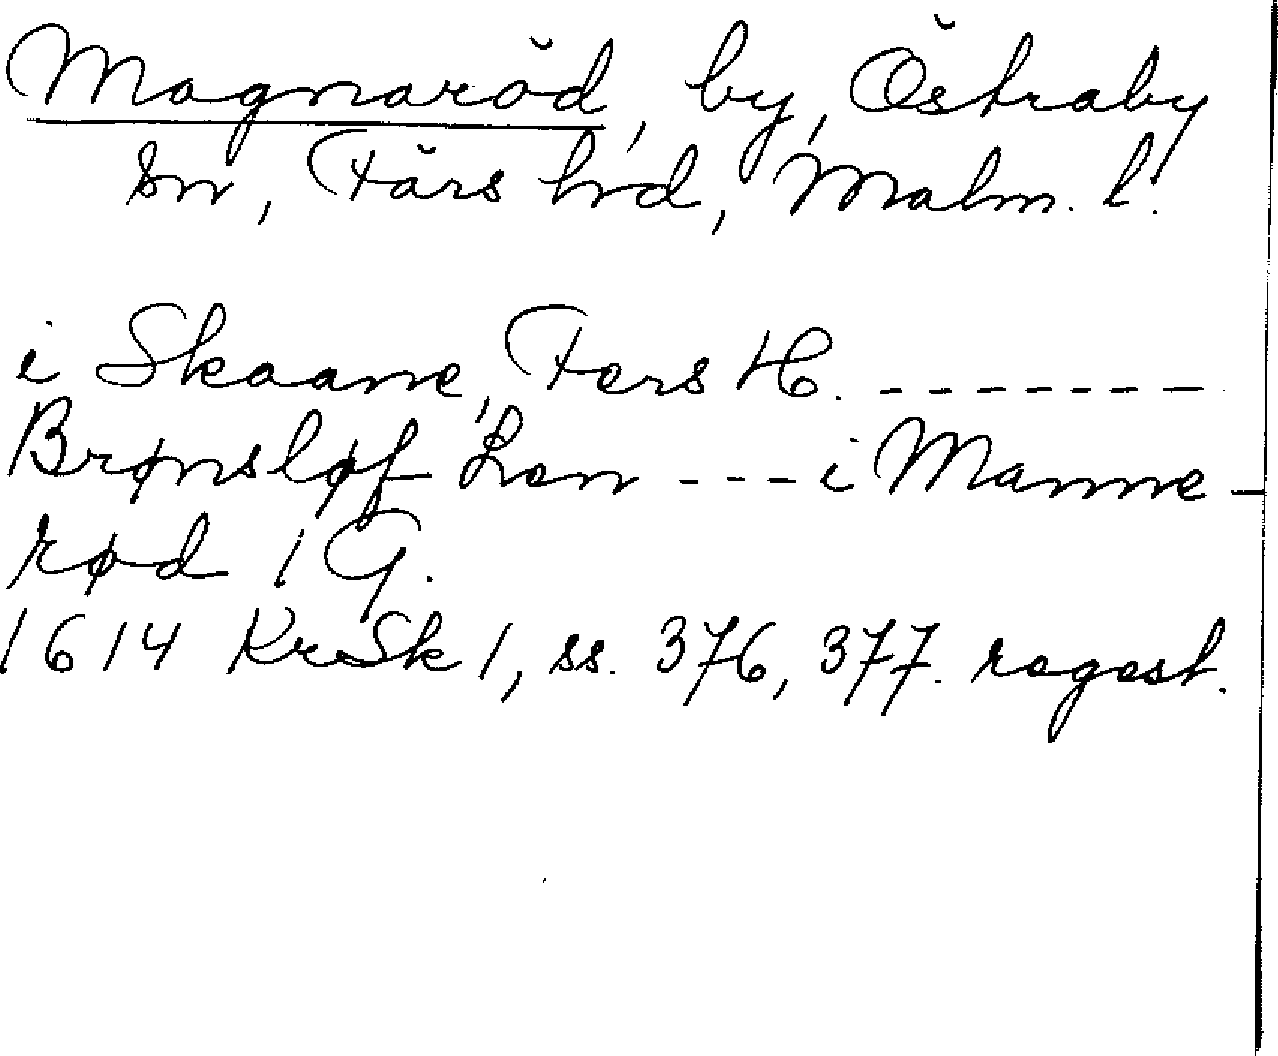 Magnaröd, by, Östraby
sn, Färs hd, Malm. l.
i Skaane, Fers H. -------
Brønsløf Len --- i Manne-
rød 1 G.
1614 KrSk 1, ss. 376, 377. regest.